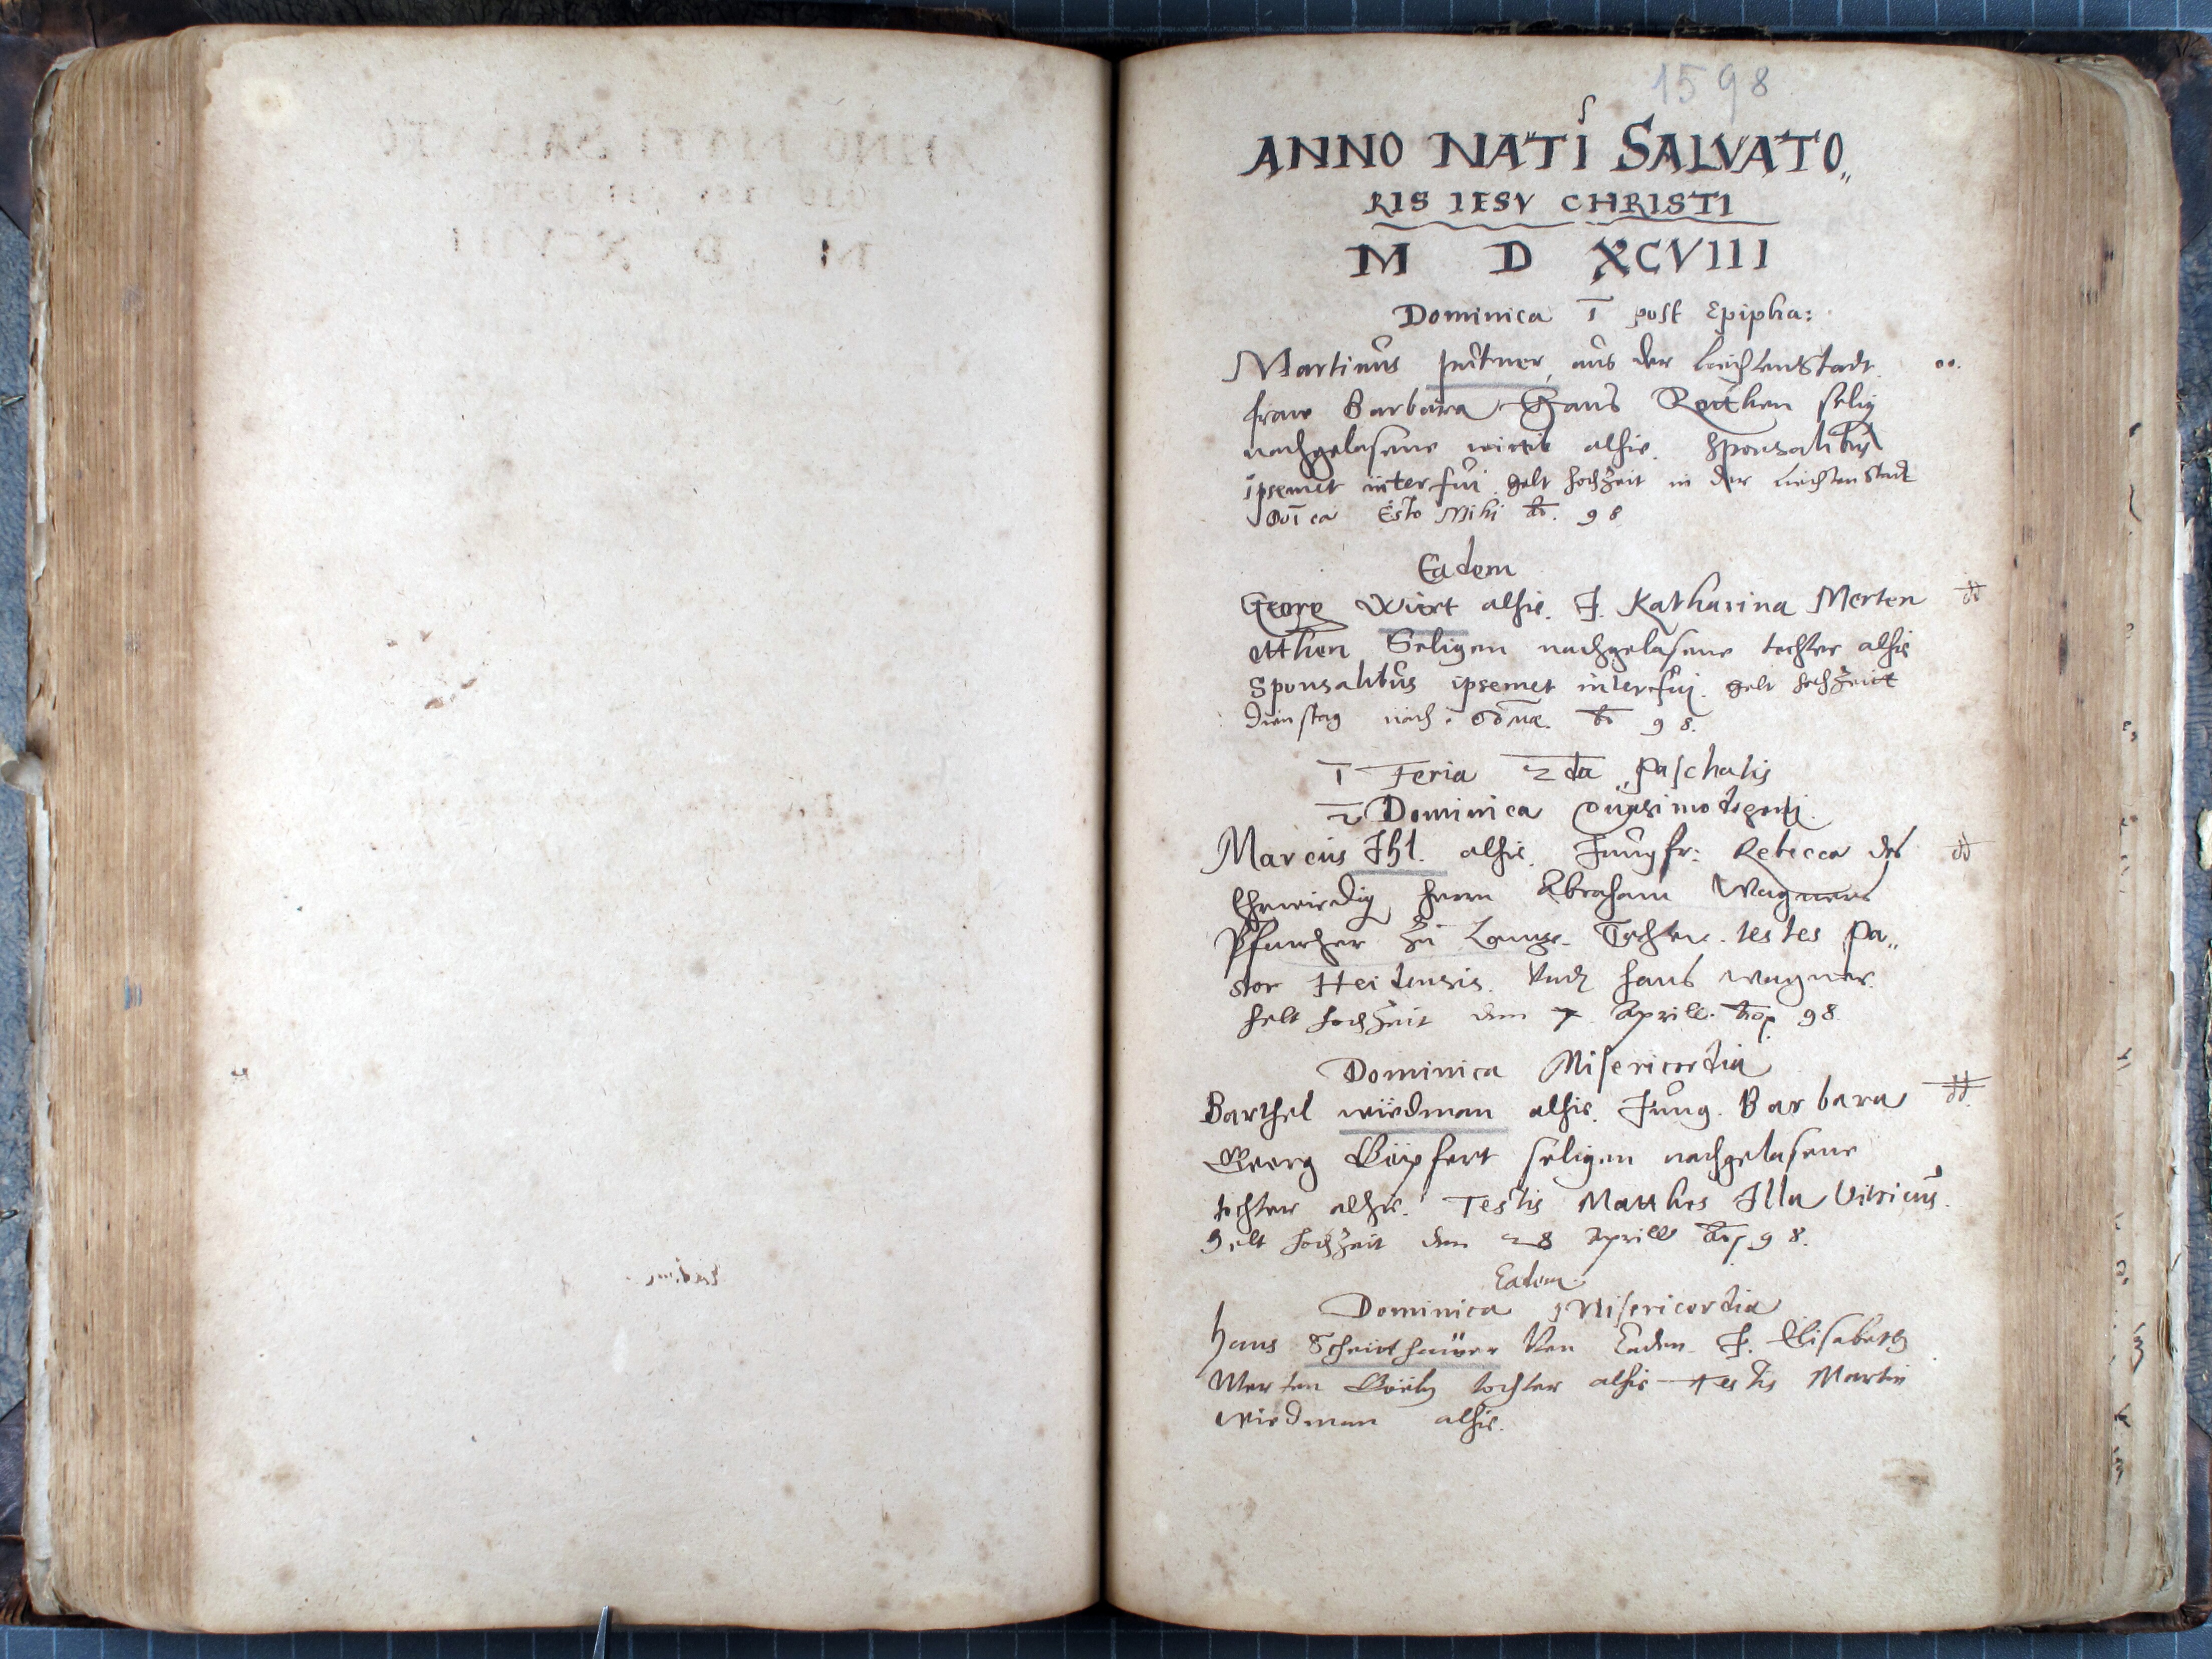 1598
ANNO NATI SALVATO„
RIS IESV CHRISTI
M D XCVIII
Dominica 1 post Epipha:
Martinus aus der Liechtenstadt.
fraw Barbara Hans selig
nachgelasene wittib alhie. Sponsalibus
ipsemet interfui. helt hochzeit in der Liechtenstadt
Esto Mihi 98
Eadem
Georg Wirt alhie. J. Katharina Merten
Seligen nachgelasene tochter alhie
Sponsalibus ipsemet interfui. helt hochzeit
Dienstag nach 98.
1 Feria 2da Paschalis
2 Dominica Quasimodogeniti.
Marcus Ihl. alhie. Jungfr: Rebecca des
Ehrwirdig herrn Abraham Wagners
Pfarrher zu Tochter. testes Pa„
stor Heidensis. Vnd hans wagner.
helt hochzeit den 7 Aprill. 98.
Dominica Misericordia
Barthel wiedman alhie. Jung. Barbara
Georg Göpfert seligen nachgelasene
tochter alhie. Testis Matthes Illa Vitricus.
Helt hochzeit den 28 Aprill 98.
Eadem
Dominica Misericordia
hans Von J. Elisabeth
Merten tochter alhie Testis Martin
Wiedman alhie.